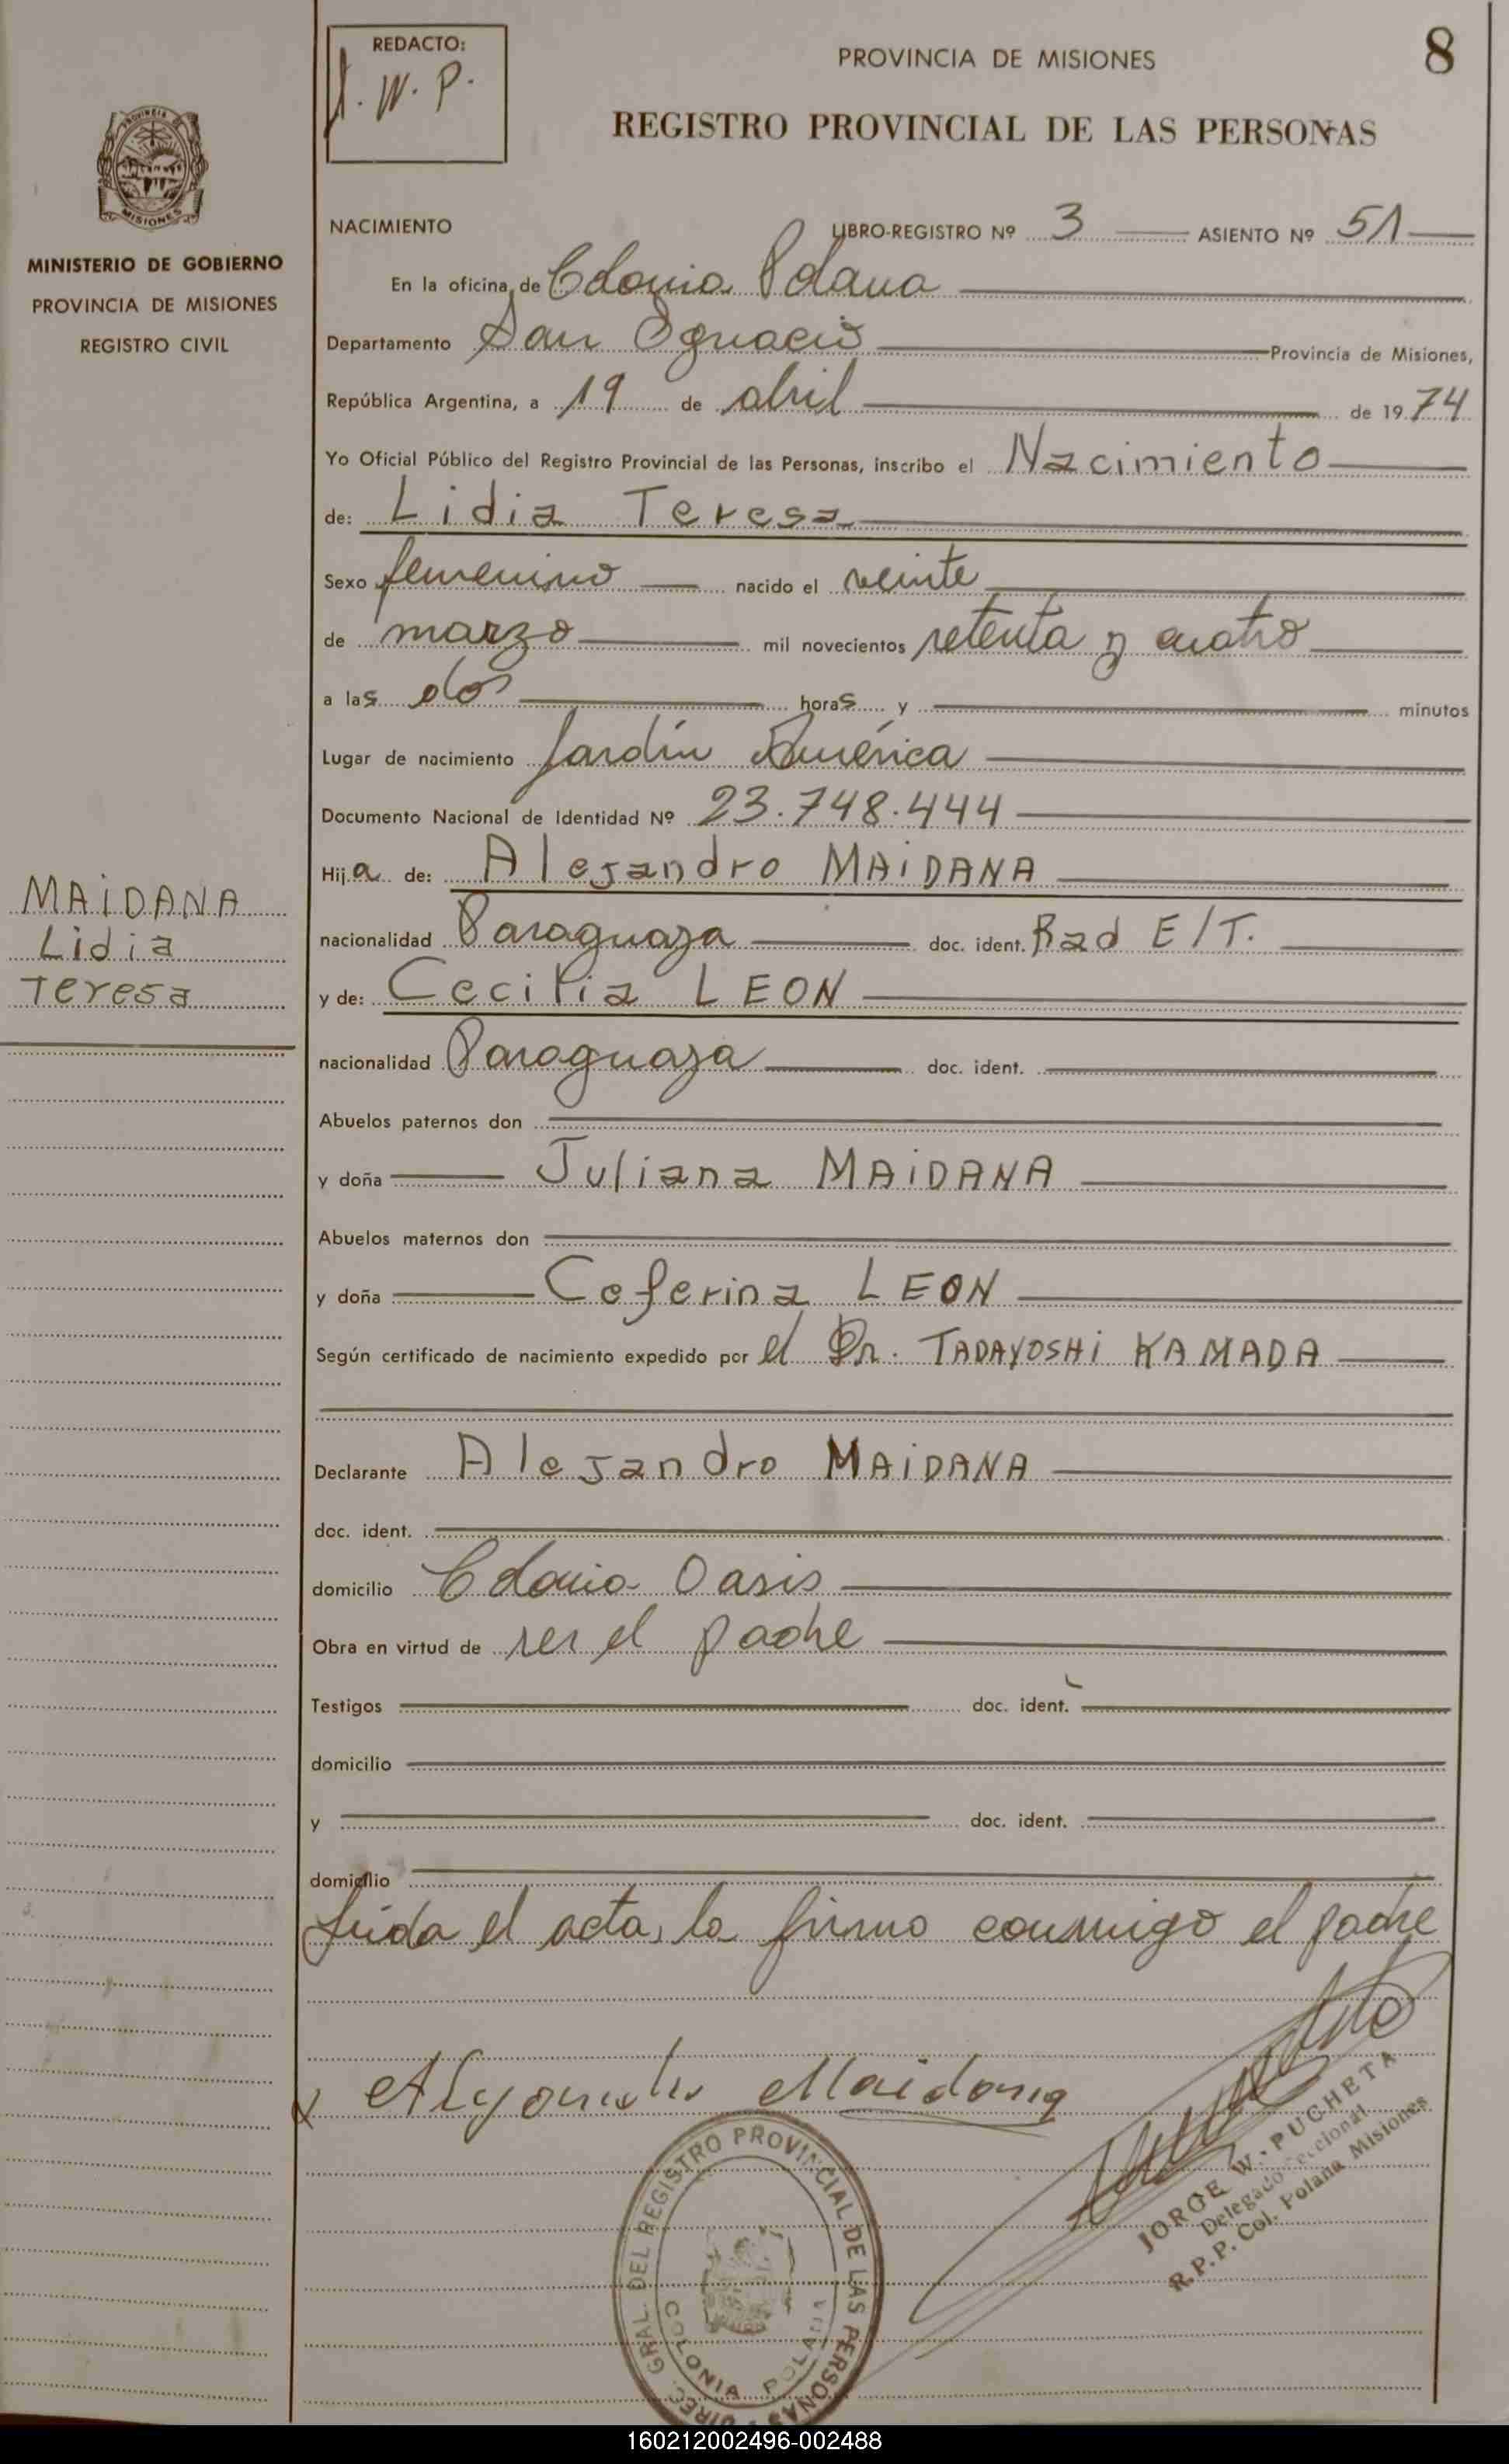 REDACTO:
J. W. P.
PROVINCIA DE MISIONES
8
REGISTRO PROVINCIAL DE LAS PERSONAS
PROVINCIA DE
MISIONES
MINISTERIO DE GOBIERNO
PROVINCIA DE MISIONES
REGISTRO CIVIL
NACIMIENTO LIBRO-REGISTRO Nº 3 ASIENTO Nº 51
En la oficina de Colonia Polana
Departamento San Ignacio Provincia de Misiones,
República Argentina, a 19 de abril de 19 74
Yo Oficial Público del Registro Provincial de las Personas, inscribo el Nacimiento
de: Lidia Teresa
Sexo femenino nacido el veinte
de marzo mil novecientos setenta y cuatro
a las dos horas y minutos
Lugar de nacimiento Jardín América
Documento Nacional de Identidad Nº 23.748.444
Hija de: Alejandro MAIDANA
MAIDANA
Lidia
Teresa
nacionalidad Paraguaya doc. ident. Rad E/T.
y de: Cecilia LEON
nacionalidad Paraguaya doc. ident.
Abuelos paternos don
y doña Juliana MAIDANA
Abuelos maternos don
y doña Ceferina LEON
Según certificado de nacimiento expedido por el Dr. TADAYOSHI KAMADA
Declarante Alejandro MAIDANA
doc. ident.
domicilio Colonia Oasis
Obra en virtud de ser el padre
Testigos doc. ident.
domicilio
y doc. ident.
domicilio
Leida el acta, la firma conmigo el padre
x Alejandro Maidana
JORGE W. PUCHETA
Delegado Seccional
R.P.P. Col. Polana Misiones
DIREC. GRAL. DEL REGISTRO PROVINCIAL DE LAS PERSONAS
COLONIA POLANA
160212002496-002488